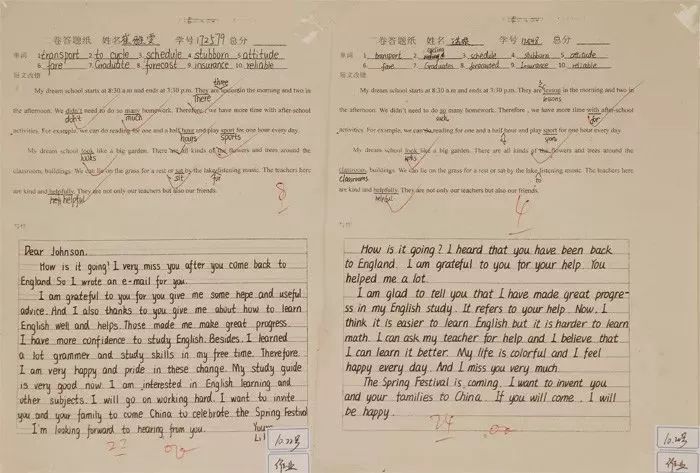 卷答题纸 姓名 学号172579 总分
单词 1.transport 2.to cycle 3.schedule 4.stubborn 5.attitude
6.fare 7.Graduate 8.forecast 9.insurance 10.reliable
短文改错
three
My dream school starts at 8:30 a.m and ends at 3:30 p.m. They are lesson in the morning and two in
There
the afternoon. We didn't need to do so many homework. Therefore, we have more time with after-school
don't much
activities. For example, we can do reading for one and a half hour and play sport for one hour every day.
hours sports
My dream school look like a big garden. There are all kinds of the flowers and trees around the
looks
classroom buildings. We can lie on the grass for a rest or sat by the lake listening music. The teachers here
sit
are kind and helpfully. They are not only our teachers but also our friends.
helpful
8
写作
Dear Johnson.
How is it going? I very miss you after you come back to
England. So I wrote an e-mail for you.
I am grateful to you for you give me some hepe and useful
advice. And I also thanks to you give me about how to learn
English well and helps. Those made me make great progress.
I have more confidence to study English. Besides. I learned
a lot grammer and study skills in my free time. Therefore.
I am very happy and pride in these change. My study guide
is very good now. I am interested in English learning and
other subjects. I will go on working hard. I want to invite
you and your family to come China to celebrate the Spring Festival
I'm looking forward to hearing from you.
10.22号
作业
卷答题纸 姓名 学号 总分
单词 1.transport 2.cycling 3.schedule 4.stubborn 5.attitude
6.fare 7.Graduates 8.forecasted 9.Insurance 10.reliable
短文改错
My dream school starts at 8:30 a.m and ends at 3:30 p.m. They are lesson in the morning and two in
lessons
the afternoon. We didn't need to do so many homework. Therefore, we have more time with after-school
for
activities. For example, we can do reading for one and a half hour and play sport for one hour every day.
My dream school look like a big garden. There are all kinds of the flowers and trees around the
classroom buildings. We can lie on the grass for a rest or sat by the lake listening music. The teachers here
classrooms to
are kind and helpfully. They are not only our teachers but also our friends.
helpful
4
写作
How is it going? I heard that you have been back
to England. I am grateful to you for your help. You
helped me a lot.
I am glad to tell you that I have made great progre-
ss in my English study. It refers to your help. Now. I
think it is easier to learn English but it is harder to learn
math. I can ask my teacher for help and I believe that
I can learn it better. My life is colorful and I feel
happy every day. And I miss you very much.
The Spring Festival is coming. I want to invent you
and your families to China. If you will come. I will
be happy.
24
10.22号
作业